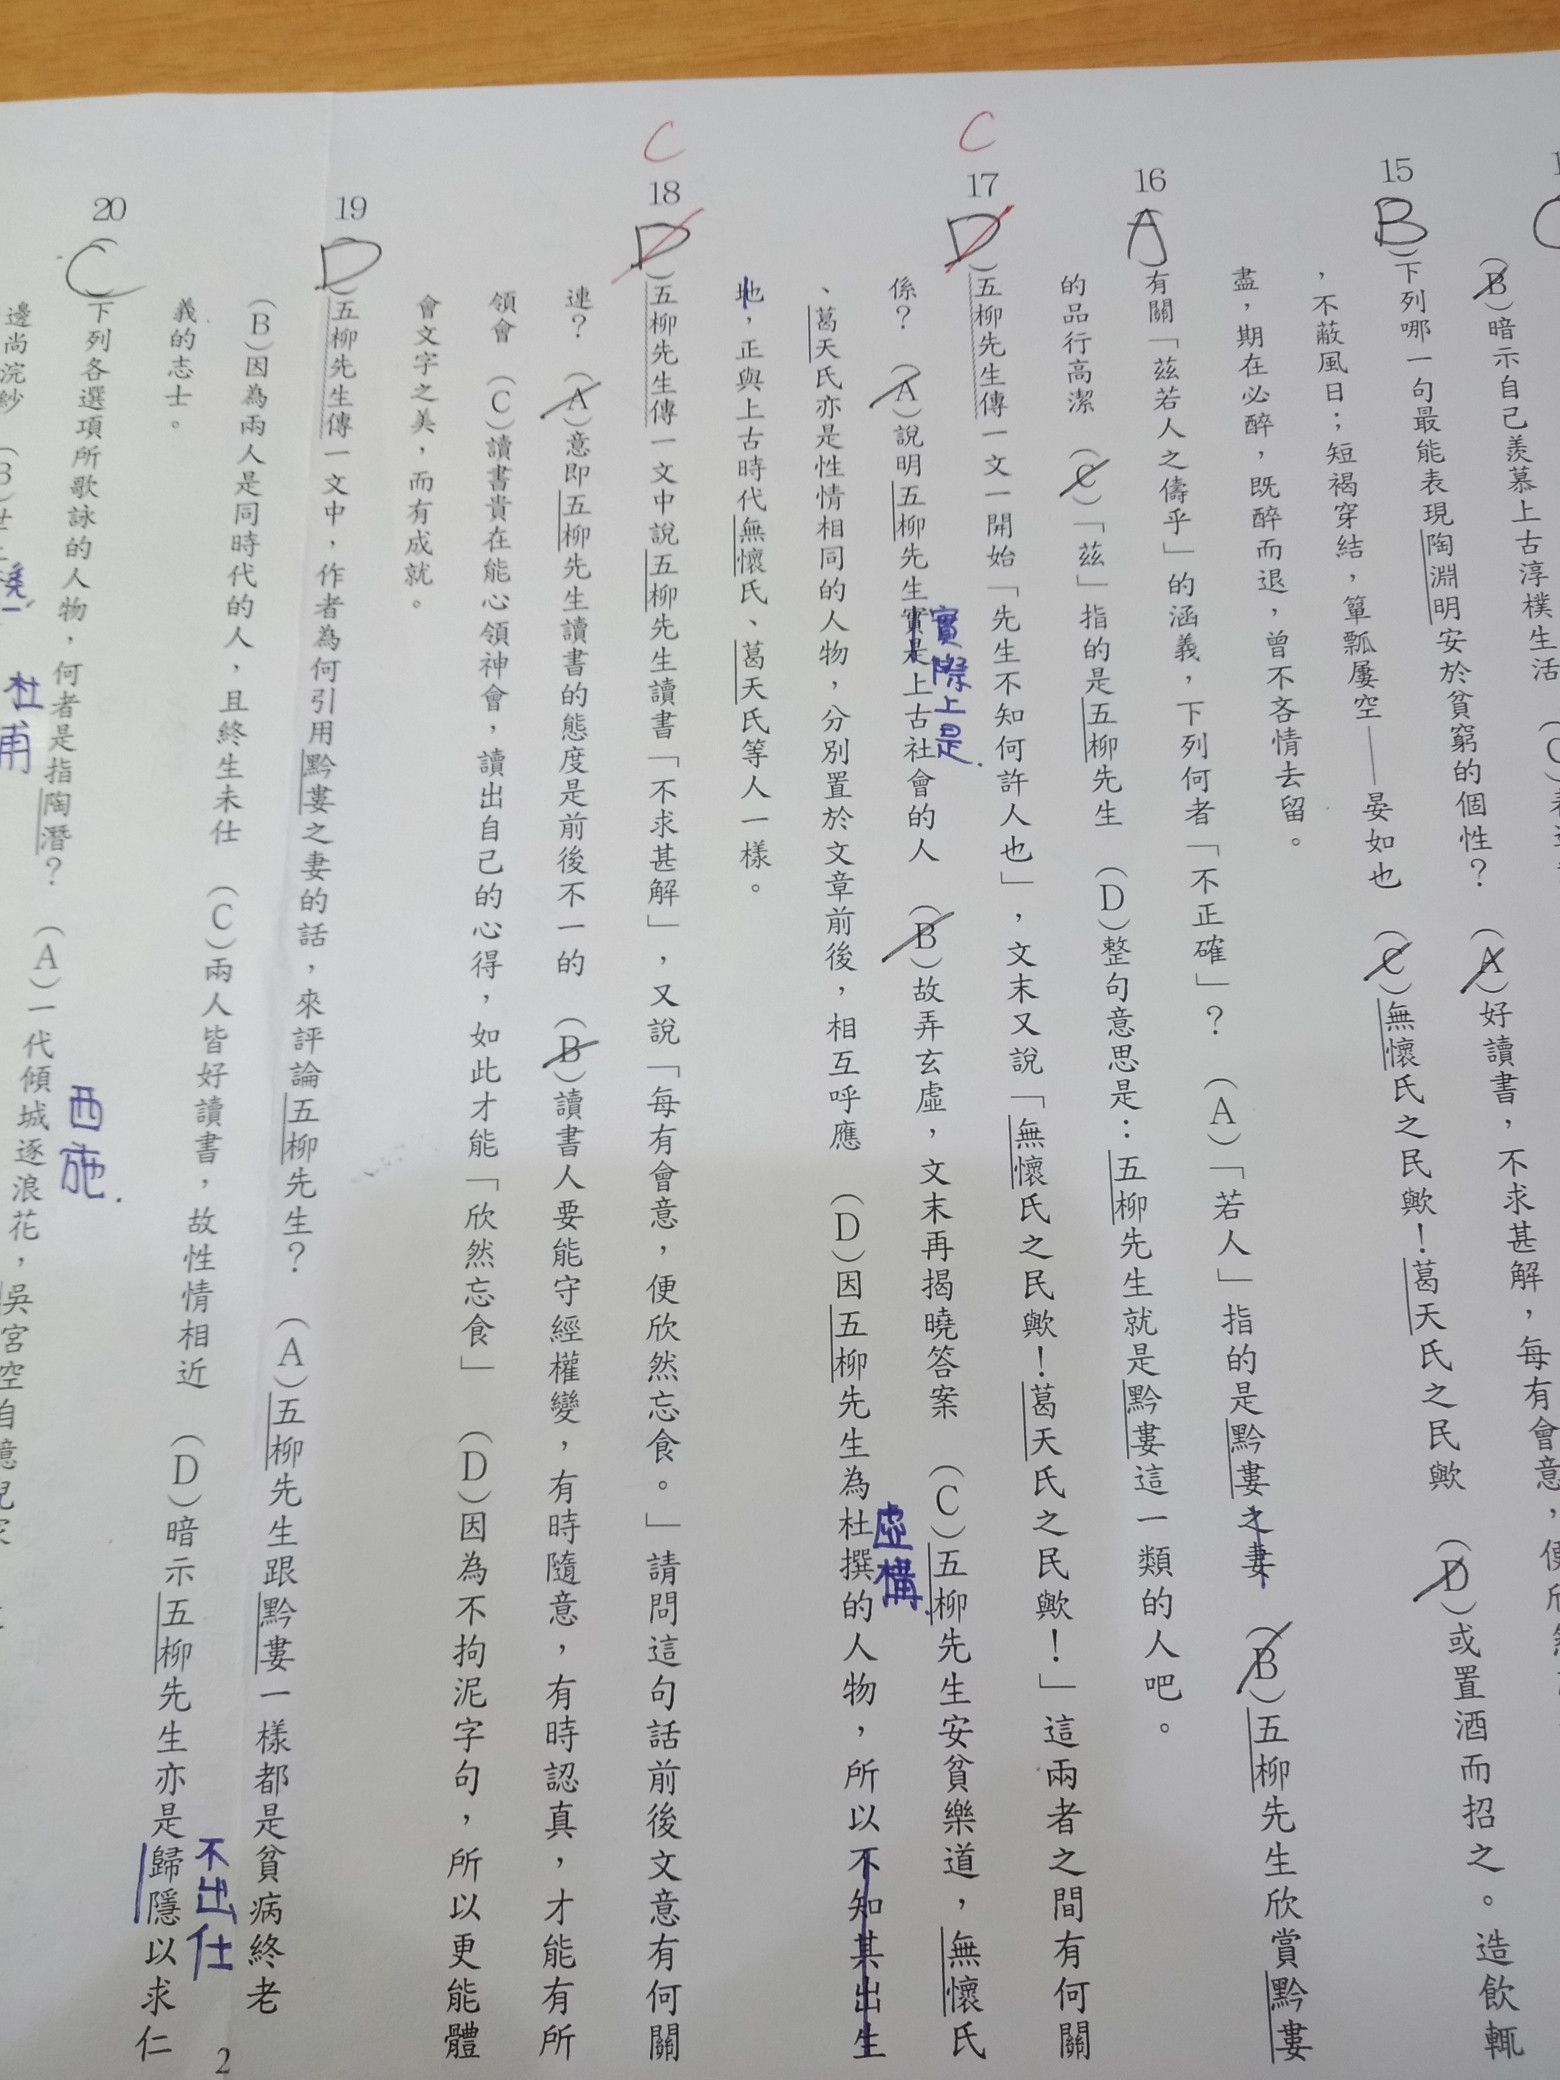 (B)暗示自己羨慕上古淳樸生活 (C)
15
B
)下列哪一句最能表現陶淵明安於貧窮的個性？ (A)好讀書，不求甚解，每有會意，便欣
，不蔽風日；短褐穿結，簞瓢屢空——晏如也 (C)無懷氏之民歟！葛天氏之民歟 (D)或置酒而招之。造飲輒
盡，期在必醉，既醉而退，曾不吝情去留。
16
A
)有關「茲若人之儔乎」的涵義，下列何者「不正確」？ (A)「若人」指的是黔婁之妻 (B)五柳先生欣賞黔婁
的品行高潔 (C)「茲」指的是五柳先生 (D)整句意思是：五柳先生就是黔婁這一類的人吧。
C
17
D
)五柳先生傳一文一開始「先生不知何許人也」，文末又說「無懷氏之民歟！葛天氏之民歟！」這兩者之間有何關
係？ (A)說明五柳先生實是上古社會的人 (B)故弄玄虛，文末再揭曉答案 (C)五柳先生安貧樂道，無懷氏
實際上是.
、葛天氏亦是性情相同的人物，分別置於文章前後，相互呼應 (D)因五柳先生為杜撰的人物，所以不知其出生
虛構.
地，正與上古時代無懷氏、葛天氏等人一樣。
C
18
D
)五柳先生傳一文中說五柳先生讀書「不求甚解」，又說「每有會意，便欣然忘食。」請問這句話前後文意有何關
連？ (A)意即五柳先生讀書的態度是前後不一的 (B)讀書人要能守經權變，有時隨意，有時認真，才能有所
領會 (C)讀書貴在能心領神會，讀出自己的心得，如此才能「欣然忘食」 (D)因為不拘泥字句，所以更能體
會文字之美，而有成就。
19
D
)五柳先生傳一文中，作者為何引用黔婁之妻的話，來評論五柳先生？ (A)五柳先生跟黔婁一樣都是貧病終老
(B)因為兩人是同時代的人，且終生未仕 (C)兩人皆好讀書，故性情相近 (D)暗示五柳先生亦是歸隱以求仁
不出仕
義的志士。
20
C
)下列各選項所歌詠的人物，何者是指陶潛？ (A)一代傾城逐浪花，吳宮空自憶兒家
西施.
邊尚浣紗 (B)世上
杜甫
2